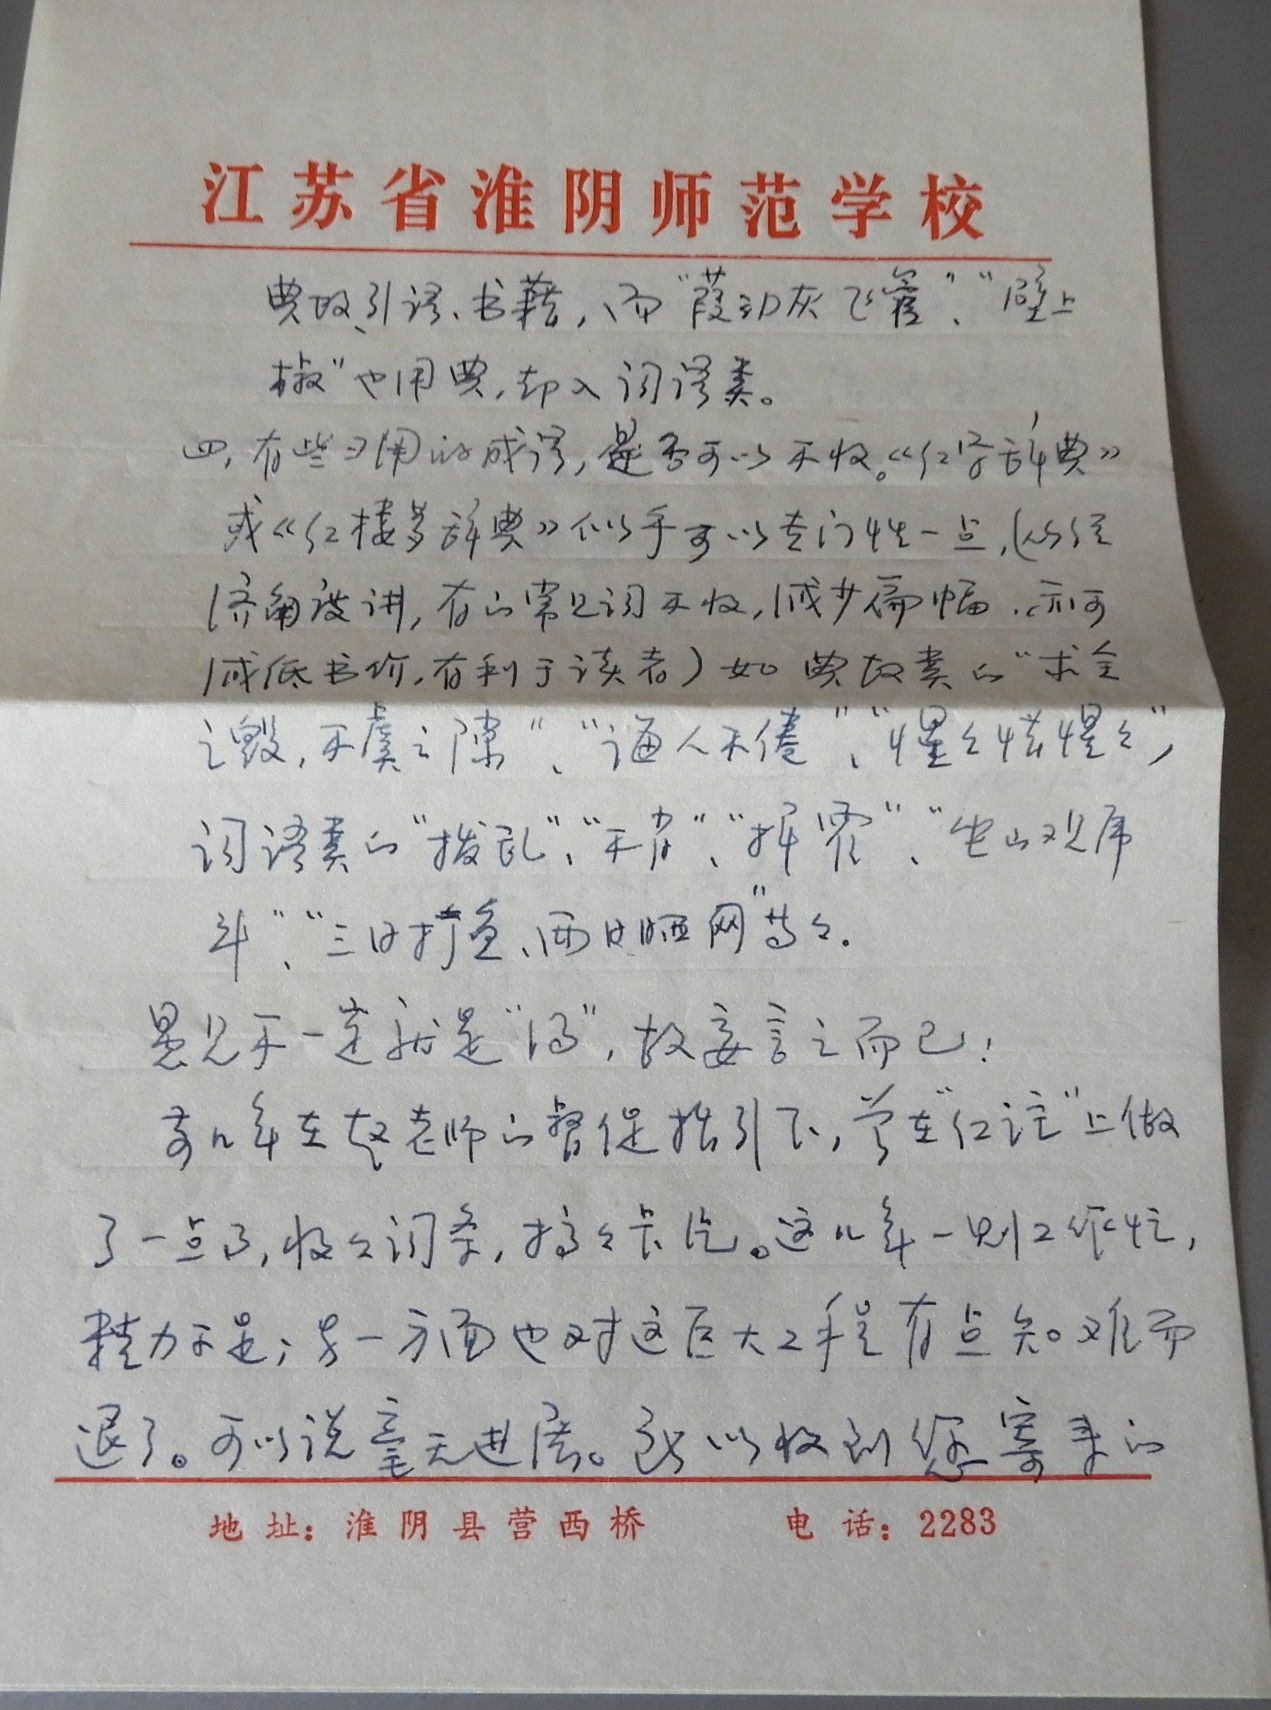 江苏省淮阴师范学校
典故、引语、书籍，而“葭动灰飞管”、“壁上
椒”也用典，却入词语类。
四，有些习用的成语，是否可以不收。《红学辞典》
或《红楼梦辞典》似乎可以专门性一点，（从经
济角度讲，有的常见词不收，减少篇幅，亦可
减低书价，有利于读者）如典故类的“求全
之毁，不虞之隙”、“诲人不倦”、“惺々惜惺々”，
词语类的“拨乱”、“不肖”、“挥霍”、“坐山观虎
斗”、“三日打鱼、两日晒网”等々。
愚见不一定就是“得”，故妄言之而已！
前几年在赵老师的督促指引下，曾在“红注”上做
了一点事，收々词条，搞々卡片。这几年一则工作忙，
精力不足；另一方面也对这巨大工程有点知难而
退了。可以说毫无进展。所以收到您寄来的
地 址：淮阴县营西桥 电 话：2283